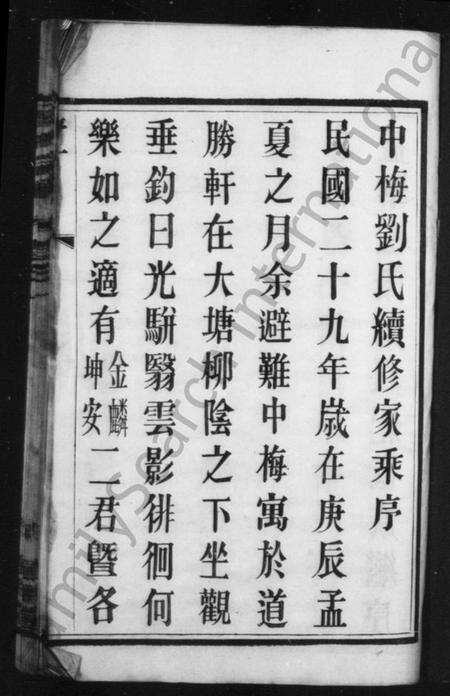 中梅劉氏續修家乘序
民國二十九年歲在庚辰孟
夏之月余避難中梅寓於道
勝軒在大塘柳陰之下坐觀
垂釣日光駢翳雲影徘徊何
樂如之適有金麟坤安二君曁各
FamilySearch International